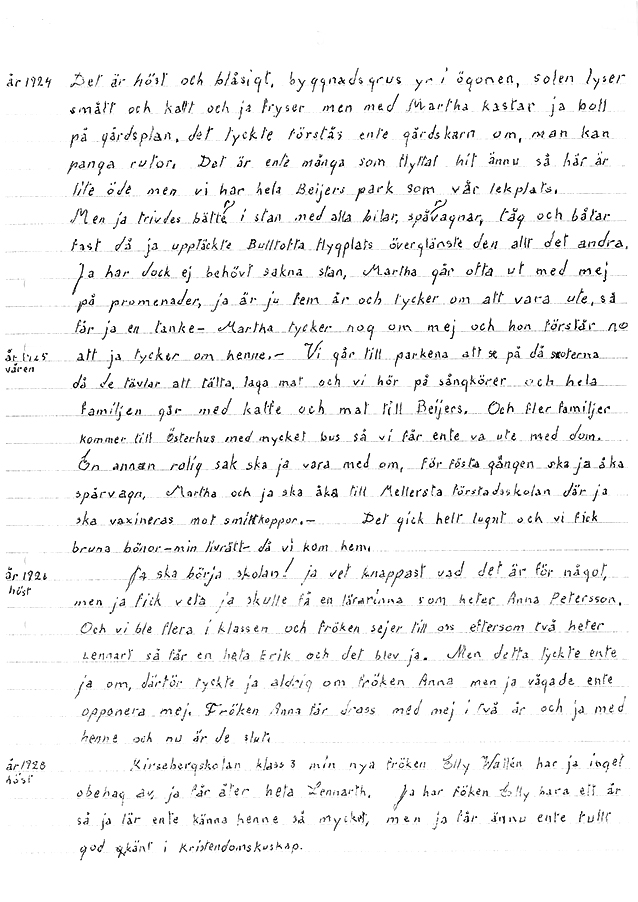 år 1924 Det är höst och blåsigt, byggnadsgrus yr i ögonen, solen lyser
smått och kallt och ja fryser men med Martha kastar ja boll
på gårdsplan, det tyckte förstås ente gårdskarn om, man kan
panga rutor. Det är ente många som flyttat hit ännu så här är
lite öde men vi har hela Beijers park som vår lekplats.
Men ja trivdes bätte i stan med alla bilar, spåvagnar, tåg och båtar
fast då ja upptäckte Bulltofta flygplats överglänste den allt det andra.
Ja har dock ej behövt sakna stan, Martha går ofta ut med mej
på promenader, ja är ju fem år och tycker om att vara ute, så
får ja en tanke- Martha tycker nog om mej och hon förstår no
år 1925 våren att ja tycker om henne.- Vi går till parkena att se på då scoterna
då de tävlar att tälta, laga mat och vi hör på sångkörer och hela
familjen går med kaffe och mat till Beijers. Och fler familjer
kommer till Österhus med mycket bus så vi får ente va ute med dom.
En annan rolig sak ska ja vara med om, för fösta gången ska ja åka
spårvagn, Martha och ja ska åka till Mellersta förstadsskolan där ja
ska vaxineras mot smittkoppor.- Det gick helt lugnt och vi fick
bruna bönor-min livrätt- då vi kom hem.
år 1926 höst Ja ska börja skolan! ja vet knappast vad det är för något,
men ja fick veta ja skulle få en lärarinna som heter Anna Petersson.
Och vi ble flera i klassen och fröken sejer till oss eftersom två heter
Lennart så får en heta Erik och det blev ja. Men detta tyckte ente
ja om, därför tyckte ja aldrig om fröken Anna men ja vågade ente
opponera mej. Fröken Anna får drass med mej i två år och ja med
henne och nu är de slut.
år 1928 höst Kirsebergskolan klass 3 min nya fröken Elly Wallén har ja inget
obehag av, ja får åter heta Lennarth. Ja har föken Elly bara ett år
så ja lär ente känna henne så mycket, men ja får ännu ente fullt
god gkänt i kristendomskuskap.